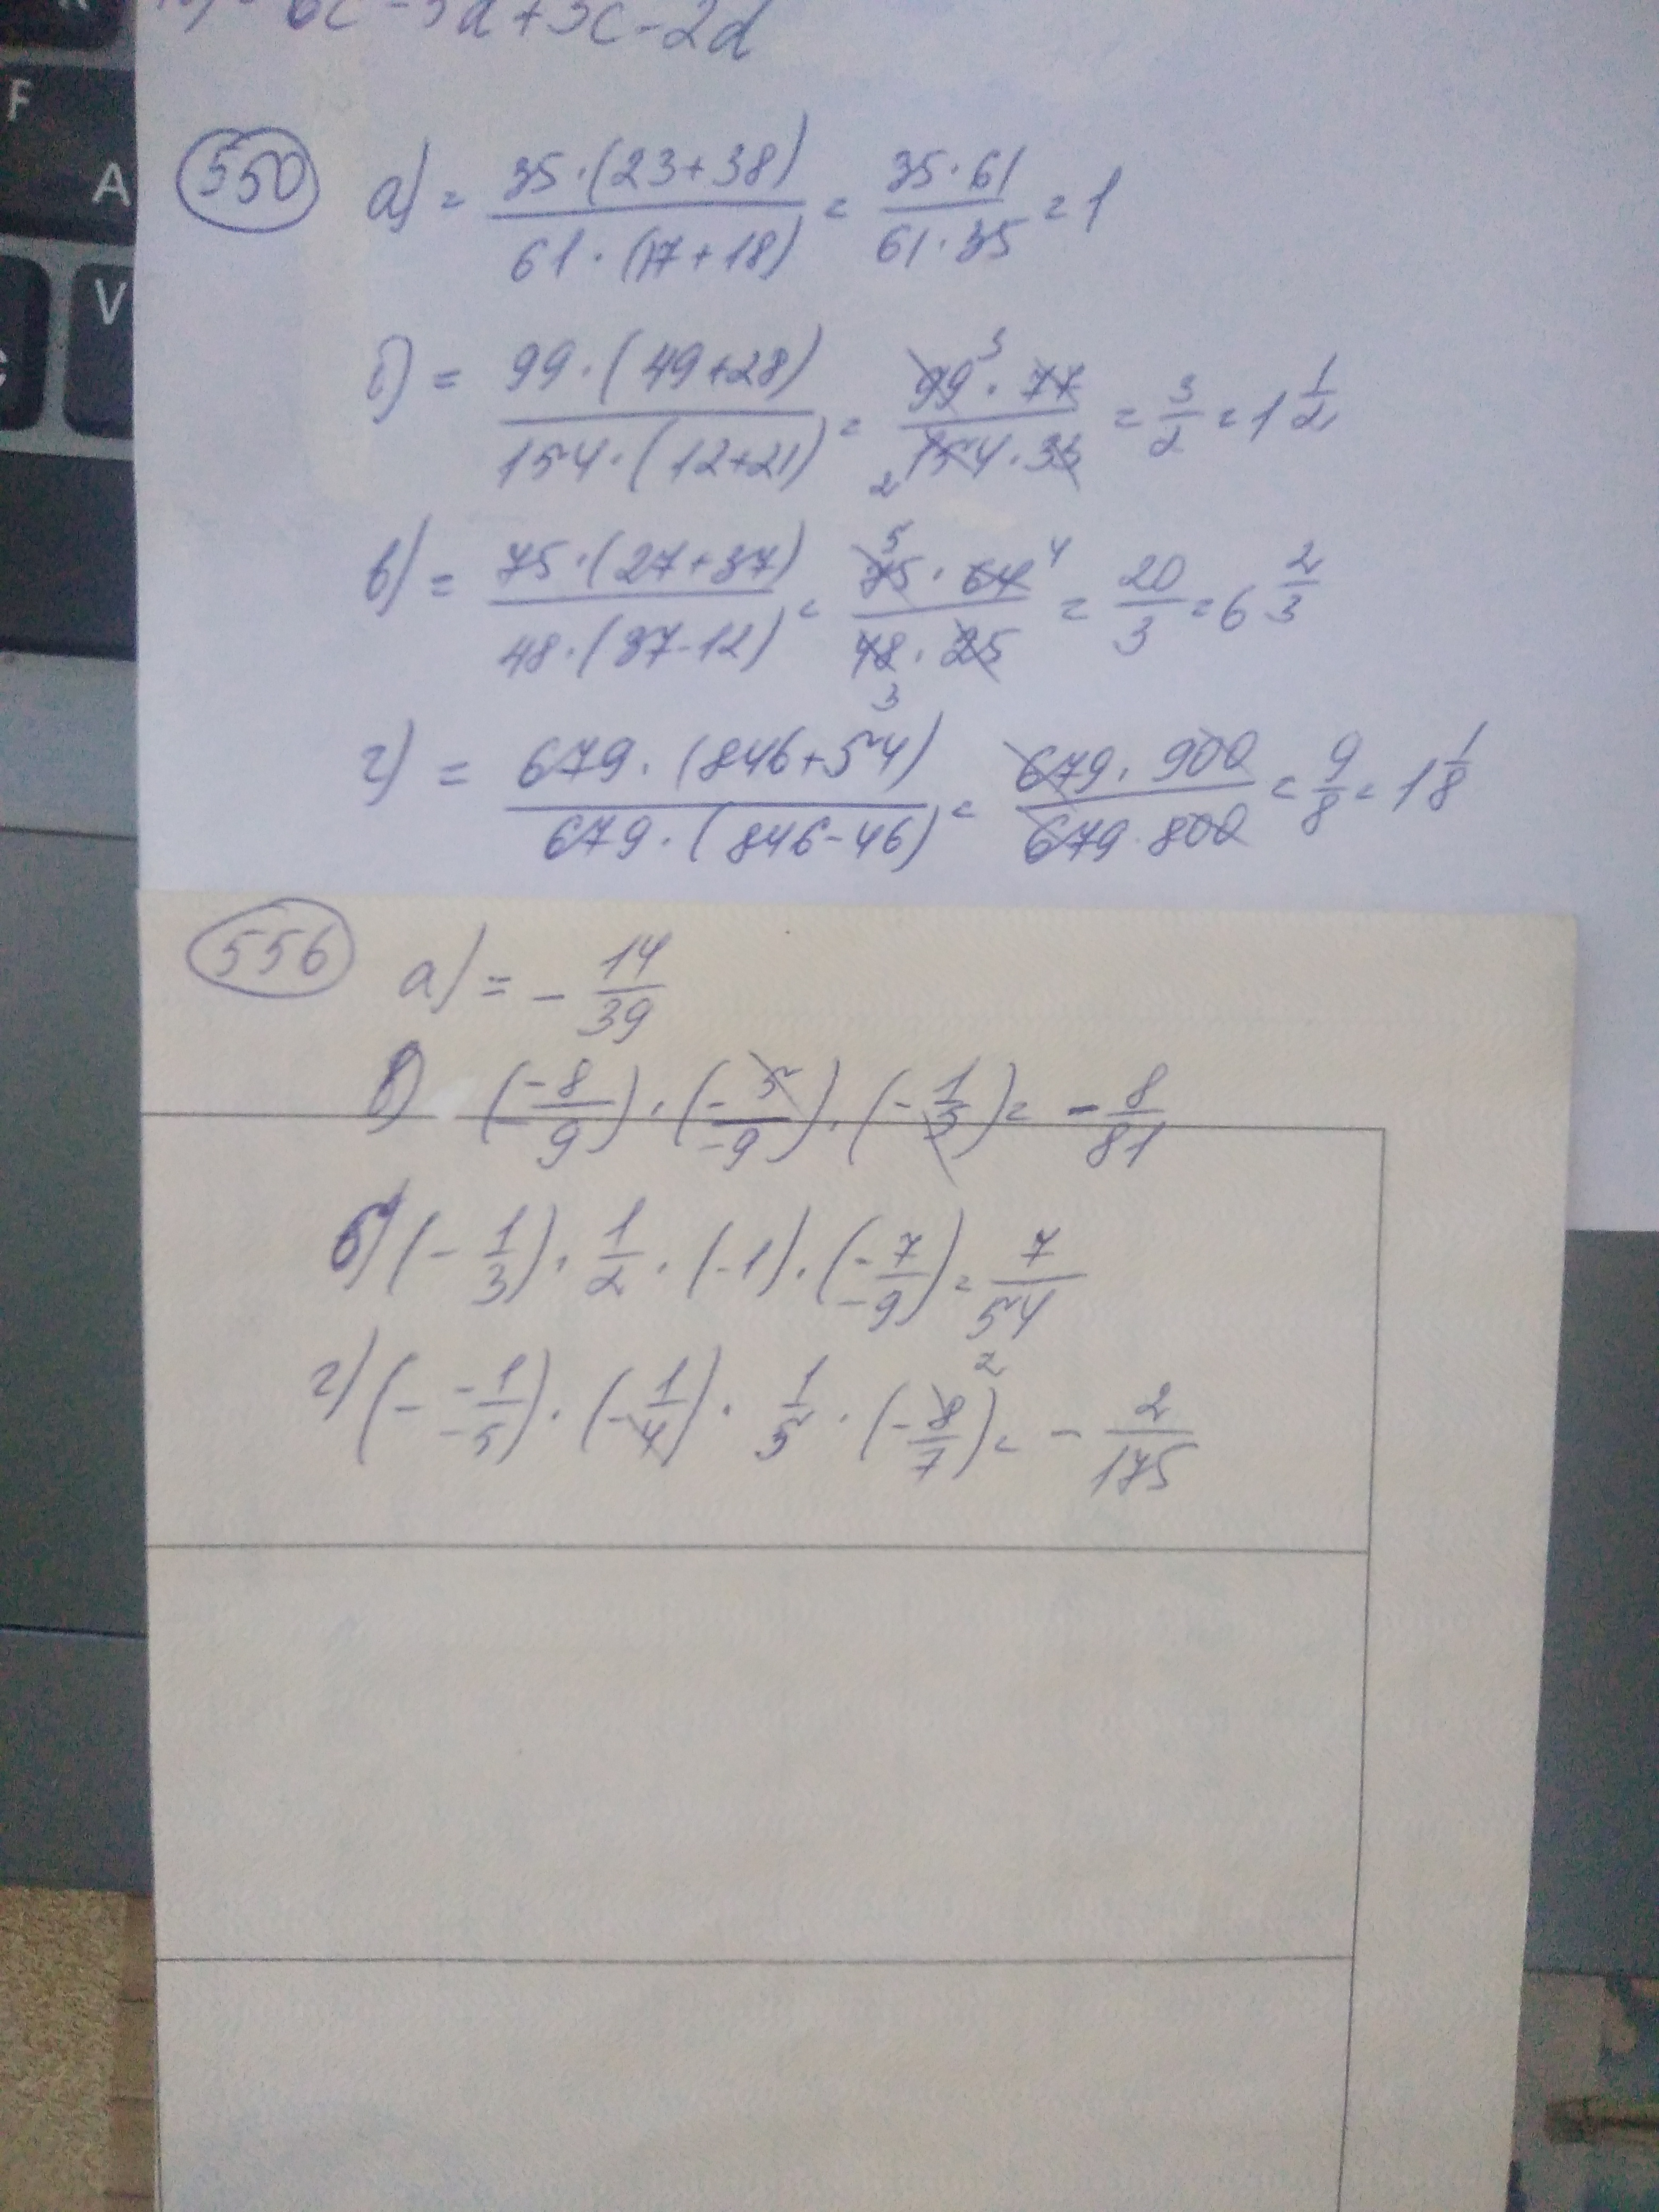 6c-3d+3c-2d
550 а) = 35·(23+38) / 61·(17+18) = 35·61 / 61·35 = 1
б) = 99·(49+28) / 154·(12+21) = 99³·77 / ₂154·33 = 3/2 = 1 1/2
в) = 75·(27+37) / 48·(37-12) = 75⁵·64⁴ / 48₃·25 = 20/3 = 6 2/3
г) = 679·(846+54) / 679·(846-46) = 679·900 / 679·800 = 9/8 = 1 1/8
556 а) = - 14/39
в) (-8/9)·(-5/-9)·(-1/5) = - 8/81
б) (-1/3)·1/2·(-1)·(-7/-9) = 7/54
г) (- -1/-5)·(-1/4)·1/5·(-8²/7) = - 2/175
F
A
V